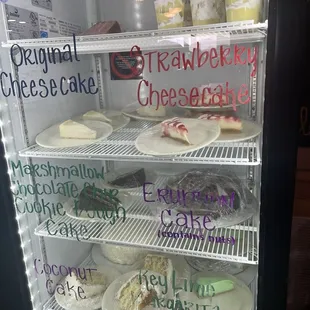 Original
Cheesecake
Strawberry
Cheesecake
Marshmallow
Chocolate Chip
Cookie Dough
Cake
Cake
(contains nuts)
Coconut
Cake
Key Lime